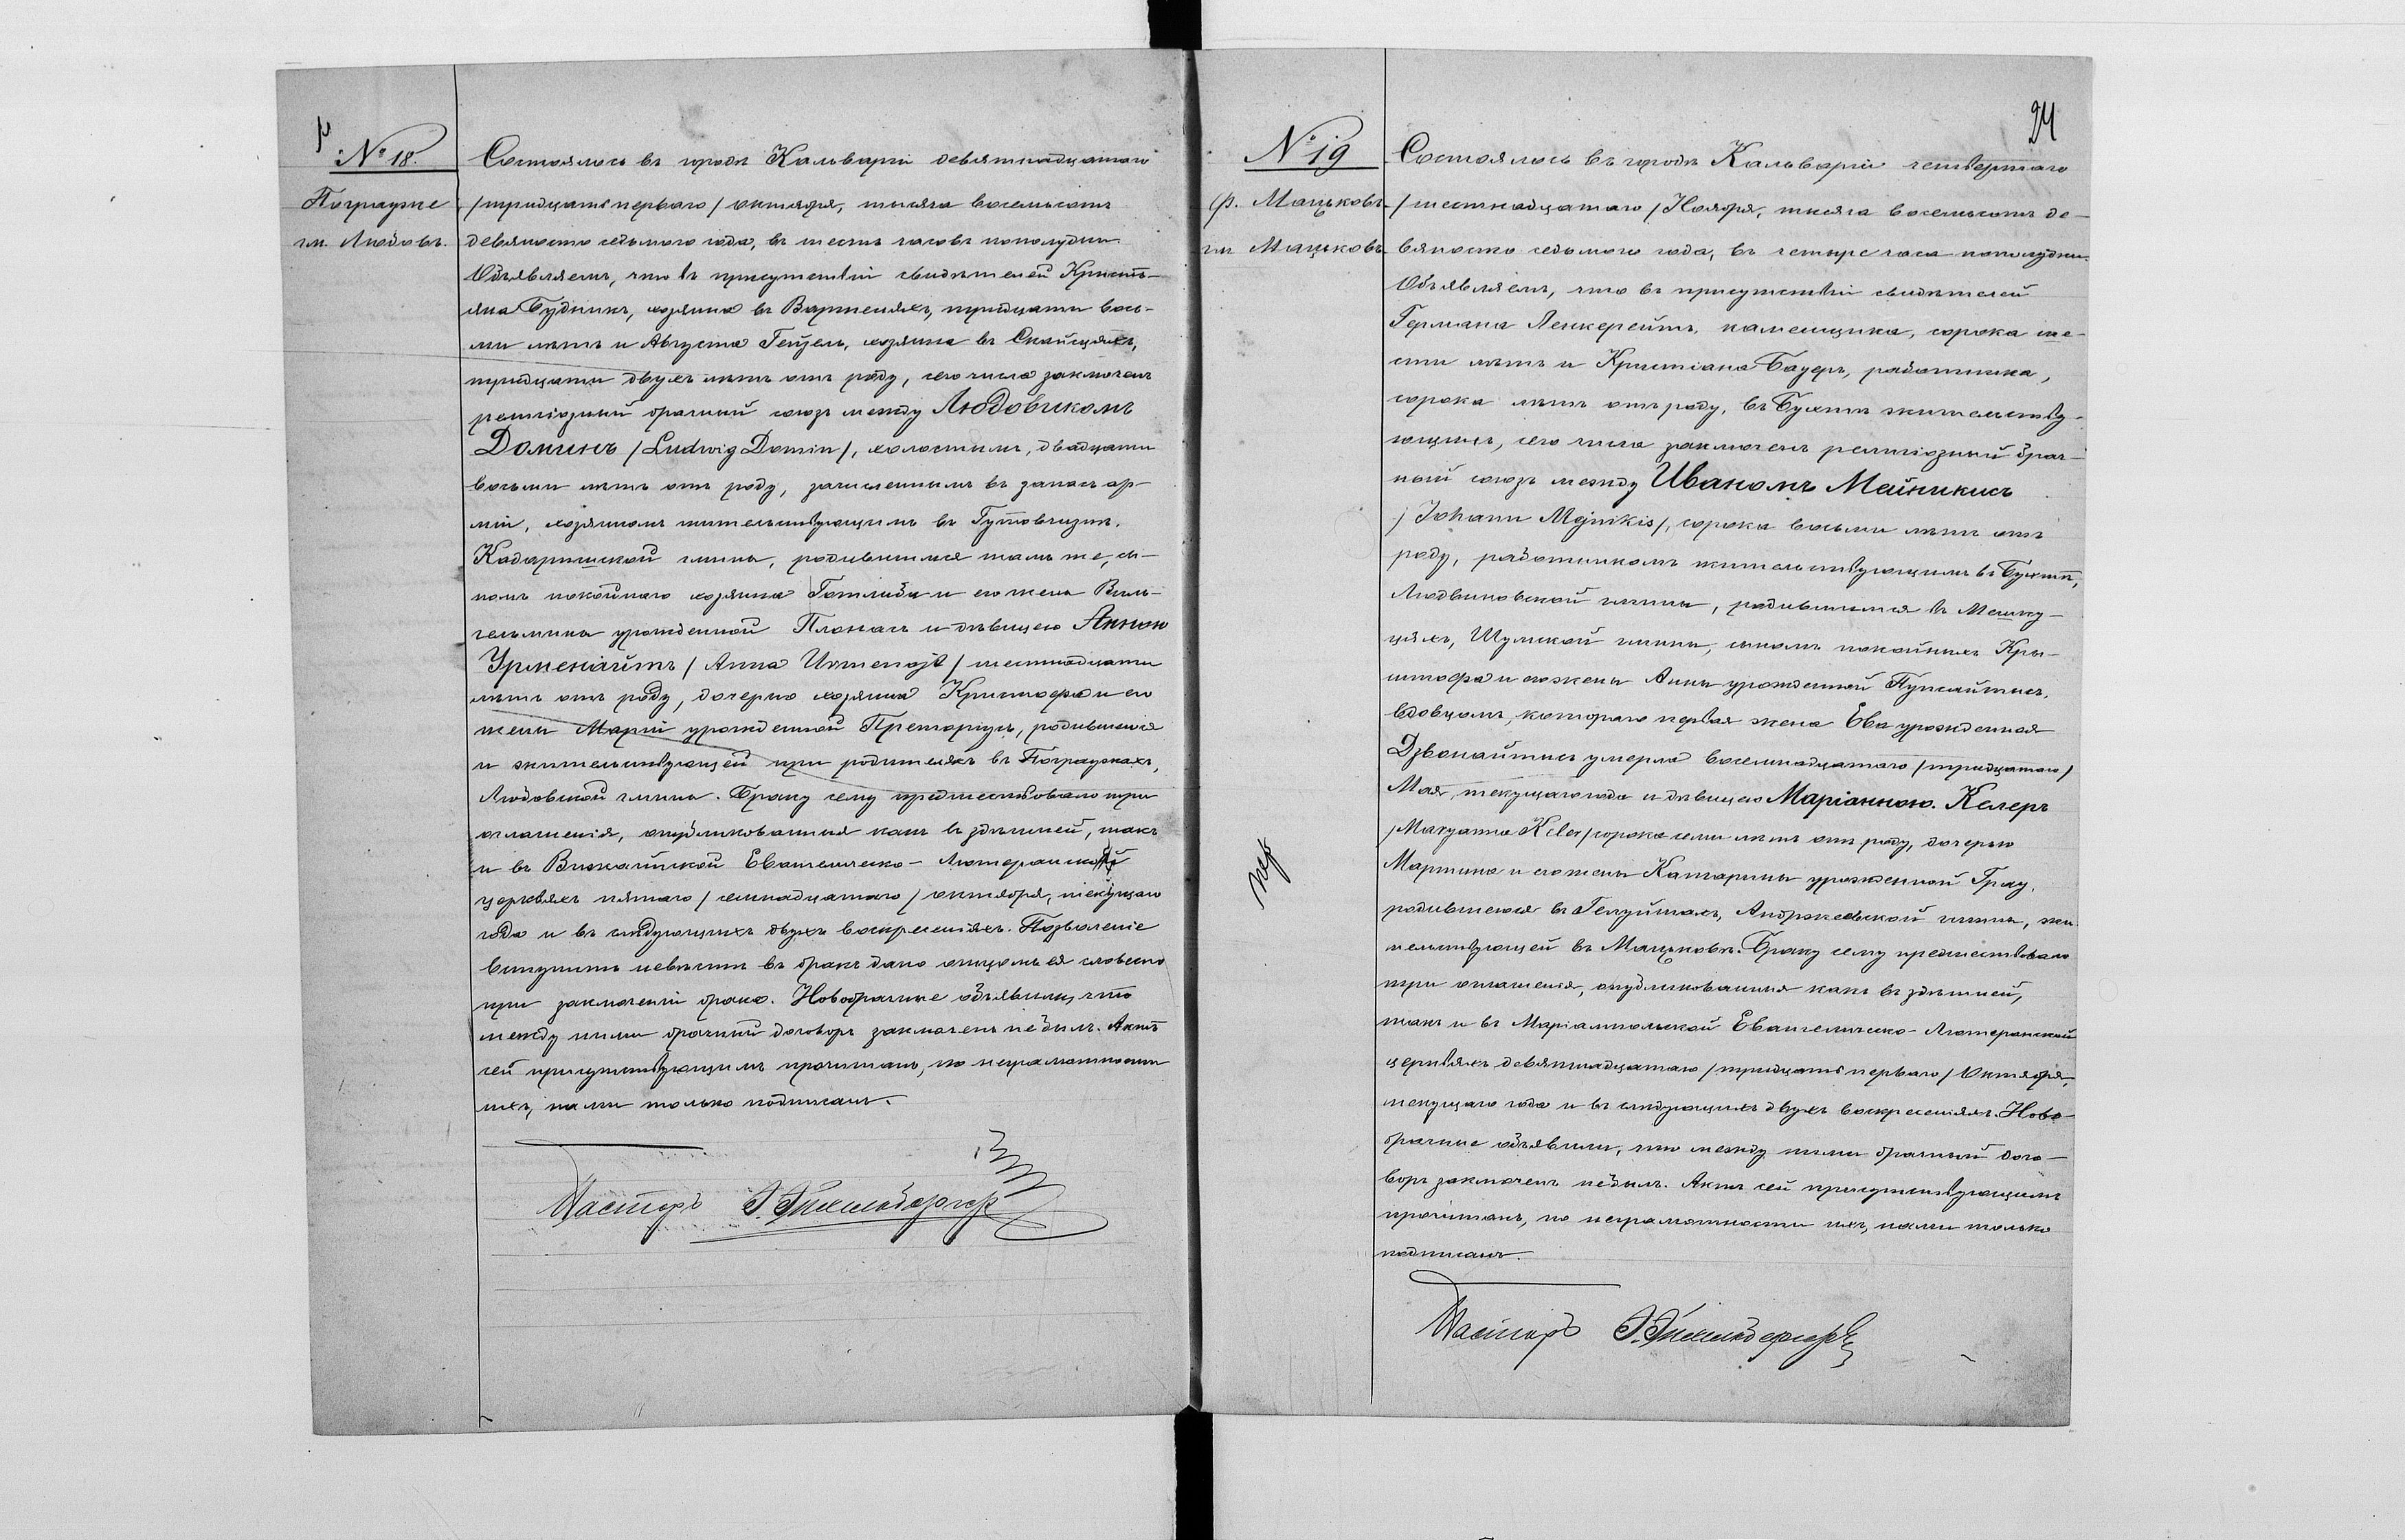 № 18.
Пограузже
гм. Любовъ.
Состоялось въ городѣ Кальваріи девятнадцатаго
/тридцать перваго/ октября, тысяча восемьсотъ
девяносто седьмого года, въ шесть часовъ пополудни.
Объявляемъ, что въ присутствіи свидѣтелей Кристь-
яна Будникъ, хозяина въ Вартеляхъ, тридцати вось-
ми лѣтъ и Августа Гейзель, хозяина въ Скайсцяхъ,
тридцати двухъ лѣтъ отъ роду, сего числа заключенъ
религіозный брачный союзъ между Людовикомъ
Доминъ /Ludwig Domin/, холостымъ, двадцати
восьми лѣтъ отъ роду, зачисленнымъ въ запасъ ар-
міи, хозяиномъ жительствующимъ въ Гутовщизнѣ,
Кадаришской гмины, родившимся тамъ же, сы-
номъ покойнаго хозяина Готлиба и его жены Виль-
гельмины урожденной Плонасъ и дѣвицею Анною
Урменайтъ /Anna Urmenajt/ шестнадцати
лѣтъ отъ роду, дочерью хозяина Кристофа и его
жены Маріи урожденной Преторіусъ, родившеюся
и жительствующей при родителяхъ въ Пограузжахъ,
Любовской гмины. Браку сему предшествовало три
оглашенія, опубликованныя какъ въ здѣшней, такъ
и въ Вижайнской Евангелическо-Лютеранской
церквяхъ пятаго /семнадцатаго/ октября, текущаго
года и въ слѣдующихъ двухъ воскресеніяхъ. Позволеніе
вступить невѣстѣ въ бракъ дано отцомъ ея словесно
при заключеніи брака. Новобрачные объявили, что
между ними брачный договоръ заключенъ не былъ. Актъ
сей присутствующимъ прочитанъ, по неграмотности
ихъ, нами только подписанъ.
Пасторъ
24
№ 19
ф. Мацьковъ
гм Мацьковъ
Состоялось въ городѣ Кальваріи четвертаго
/шестнадцатаго/ Ноября, тысяча восемьсотъ де-
вяносто седьмого года, въ четыре часа пополудни.
Объявляемъ, что въ присутствіи свидѣтелей
Германа Ленкерейтъ, каменщика, сорока ше-
сти лѣтъ и Кристіана Бауеръ, работника,
сорока лѣтъ отъ роду, въ Бухтѣ жительству-
ющихъ, сего числа заключенъ религіозный брач-
ный союзъ между Иваномъ Мейникисъ
/Johann Mejnikis/, сорока восьми лѣтъ отъ
роду, работникомъ жительствующимъ въ Бухтѣ,
Людвиновской гмины, родившимся въ Мешку-
цяхъ, Шумской гмины, сыномъ покойныхъ Кри-
штофа и его жены Анны урожденной Пупсайтисъ,
вдовцомъ, котораго первая жена Ева урожденная
Дзвонайтисъ умерла восемнадцатаго /тридцатаго/
Мая, текущаго года и дѣвицею Маріанною. Келеръ
/Maryanna Keler/ сорока семи лѣтъ отъ роду, дочерью
Мартина и его жены Катарины урожденной Грау,
родившеюся въ Гелуйтахъ, Андржеевской гмины, жи-
тельствующей въ Мацьковѣ. Браку сему предшествовало
три оглашенія, опубликованныя какъ въ здѣшней,
такъ и въ Маріампольской Евангелическо-Лютеранской
церквяхъ девятнадцатаго /тридцать перваго/ Октября,
текущаго года и въ слѣдующихъ двухъ воскресеніяхъ. Ново-
брачные объявили, что между ними брачный дого-
воръ заключенъ не былъ. Актъ сей присутствующимъ
прочитанъ, по неграмотности ихъ, нами только
подписанъ.
Пасторъ